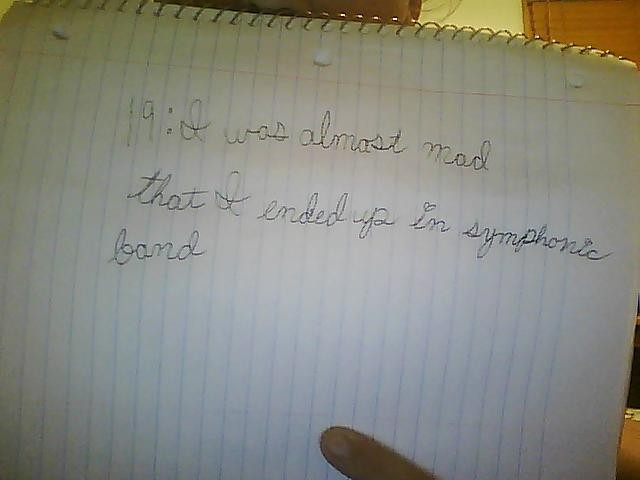 19: I was almost mad
that I ended up in symphonic
band